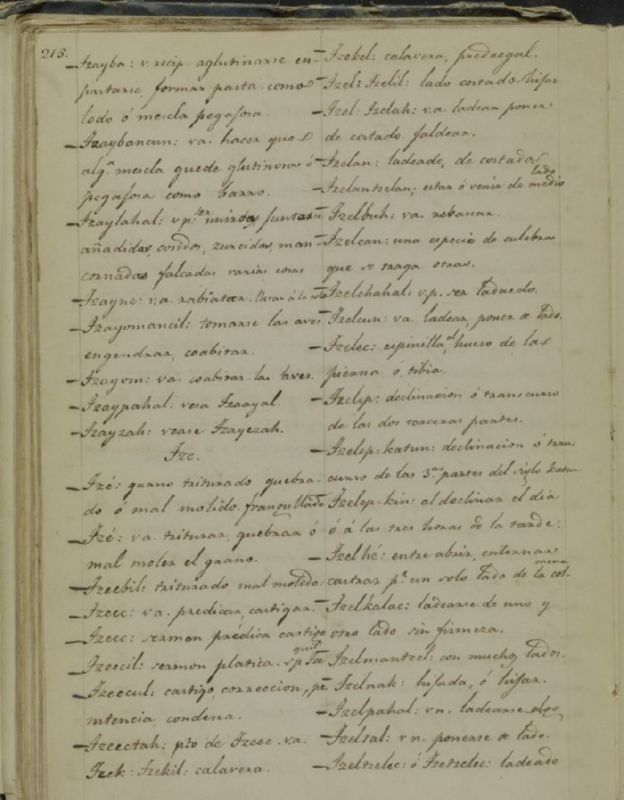 215.
— Tzayba: v. recip. aglutinarse em-
partarse, formar pasta como
lodo ó mescla pegajosa.
— Tzaybancun: va. hacer que
alg.ª mescla quede glutinosa é
pegajosa como barro.
— Tzaylahal: v p. ser unidos, juntar
añadidos, cosidos, zurcidos, man-
cornados falcadas varias cosas
— Tzayne: v.a. rabiatar.
— Tzayomancil: tomarse las aves
engendrar, coabitar.
— Tzayom: va. coabitar las aves.
— Tzaypahal: vea Tzaayal
— Tzayzah: vease Tzayezah.
Tze.
— Tzé: grano triturado quebra-
do ó mal molido, frangullado
— Tzé: va. triturar, quebrar ó
mal moler el grano.
— Tzeebil: triturado mal molido.
— Tzeec: va. predicar, castigar.
— Tzeec: sermon prédica castigo
— Tzeecil: sermon platica.
— Tzeecul: castigo, correccion, pe
nitencia, condena.
— Tzeectah: pto de Tzeec. va.
Tzek: Tzekil: calavera.
— Tzekel: calavera, pedregal.
— Tzel: Tzelil: lado costado hijar
— Tzel: Tzelah: v.a. ladear poner
de costado. faldear.
— Tzelan: ladeado, de costado
— Tzelantzelan; estar ó venir de medio lado
— Tzelbuh: va. rebanar.
— Tzelcan: una especie de culebra
que se traga otras.
— Tzelchahal: v.p. ser ladeado.
— Tzelcun: va. ladear, poner de lado.
— Tzelec: espinilla, el hueso de la
pierna ó tibia.
— Tzelep: declinacion ó transcurso
de las dos terceras partes.
— Tzelep-katun: declinacion ó tran
curso de las 3.as partes del siglo katun
— Tzelep-kin: al declinar el dia
ó á las tres horas de la tarde.
— Tzelhé: entre abrir, entornar
castrar p.r un solo lado de la colmena
— Tzelkalac: ladearse de uno y
otro lado sin firmeza.
— Tzelmantzel: con muchos lados.
— Tzelnak: hijada, ó hijar.
— Tzelpahal: vn. ladearse
— Tzeltal: v n. ponerse de lado.
— Tzeltzelec: ó Tzetzelec: ladeado